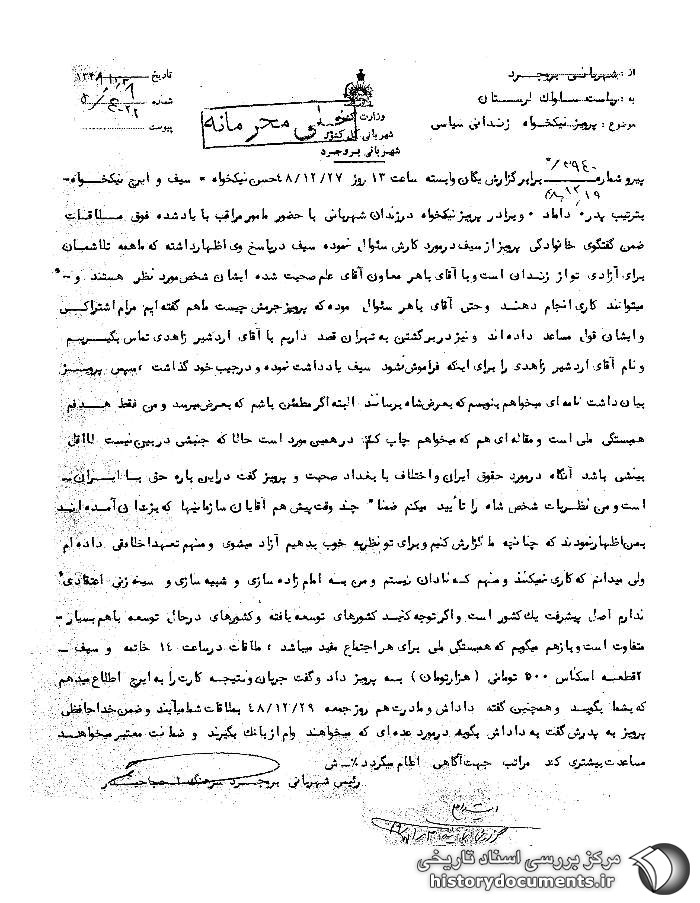 از : شهربانی بروجرد
به : ریاست ساواک لرستان
موضوع : پرویز نیکخواه زندانی سیاسی
وزارت کشور
شهربانی کل کشور
شهربانی بروجرد
خیلی محرمانه
تاریخ
شماره
پیوست
پیرو شماره ۲۹۴۰/ ۴۸/۱۲/۱۹ برابر گزارش یگان وابسته ساعت ۱۳ روز ۴۸/۱۲/۲۷ حسن نیکخواه - سیف و ایرج نیکخواه -
بترتیب پدر، داماد ، وبرادر پرویز نیکخواه درزندان شهربانی با حضور مامور مراقب با یادشده فوق ملاقات
ضمن گفتگوی خانوادگی پرویز از سیف درمورد کارش سئوال نموده سیف درپاسخ وی اظهارداشته که ماهمه تلاشمان
برای آزادی تو از زندان است و با آقای باهر معاون آقای علم صحبت شده ایشان شخص مورد نظر هستند و -
میتوانند کاری انجام دهند وحتی آقای باهر سئوال نموده که پرویز جرمش چیست ماهم گفته ایم مرام اشتراکی
وایشان قول مساعد داده اند ونیز در برگشتن به تهران قصد داریم با آقای اردشیر زاهدی تماس بگیریم
و نام آقای اردشیر زاهدی را برای اینکه فراموش نشود سیف یادداشت نموده و درجیب خود گذاشت ، سپس پرویز
بیان داشت نامه ای میخواهم بنویسم که بعرض شاه برسانند البته اگر مطمئن باشم که بعرض میرسد و من فقط هدفم
همبستگی ملی است و مقاله ای هم که میخواهم چاپ کنم درهمین مورد است حالا که جنبشی دربین نیست لااقل
بینشی باشد آنگاه درمورد حقوق ایران و اختلاف با بغداد صحبت و پرویز گفت دراین باره حق با ایران -
است و من نظریات شخص شاه را تأیید میکنم ضمنا" چند وقت پیش هم آقایان سازمانیها که بزندان آمده بودند
بمن اظهارنمودند که چنانچه ما گزارش کنیم و برای تو نظریه خوب بدهیم آزاد میشوی و منهم تعهد اخلاقی داده ام
ولی میدانم که کاری نمیکنند و منهم که نادان نیستم و من به امام زاده سازی و شبیه سازی و سینه زنی اعتقادی
ندارم اصل پیشرفت یک کشور است و اگر توجه کنید کشورهای توسعه یافته و کشورهای درحال توسعه باهم بسیار -
متفاوت است و بازهم میگویم که همبستگی ملی برای هر اجتماع مفید میباشد ، ملاقات درساعت ۱۴ خاتمه و سیف -
۲قطعه اسکناس ۵۰۰ تومانی (هزارتومان) به پرویز داد و گفت جریان ونتیجه کارت را به ایرج اطلاع میدهم
که بشما بگوید و همچنین گفته داداش و مادرت هم روز جمعه ۴۸/۱۲/۲۹ بملاقات شما میآیند و ضمن خداحافظی
پرویز به پدرش گفت به داداش بگوید درمورد عده ای که میخواهند وام از بانک بگیرند و ضمانت معتبر میخواهند
مساعدت بیشتری کند مراتب جهت آگاهی اعلام میگردد٪ ش
رئیس شهربانی بروجرد سرهنگ
مرکز بررسی اسناد تاریخی
historydocuments.ir